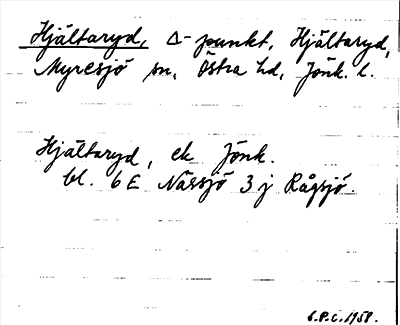 Hjältaryd, Δ-punkt, Hjältaryd,
Myresjö sn, Östra hd, Jönk. l.
Hjältaryd, ek Jönk.
bl. 6 E Nässjö 3 j Rågsjö.
S.P.C. 1958.